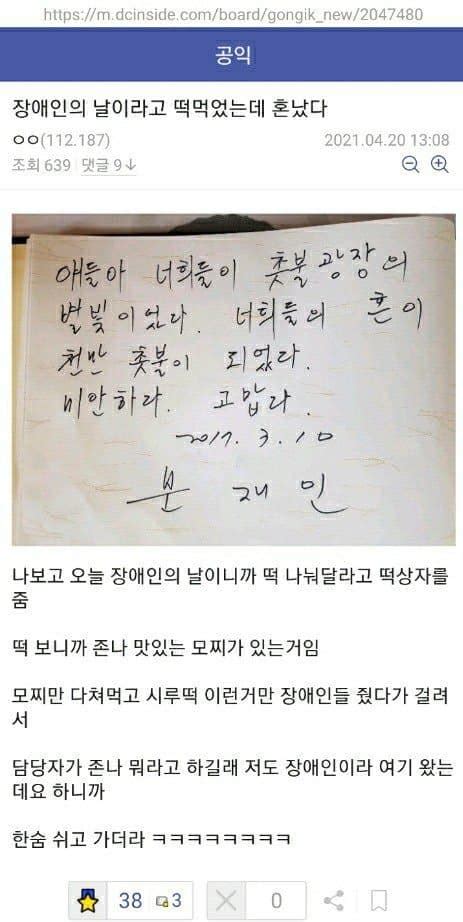 https://m.dcinside.com/board/gongik_new/2047480
공익
장애인의 날이라고 떡먹었는데 혼났다
ㅇㅇ(112.187) 2021.04.20 13:08
조회 639 댓글 9↓
얘들아 너희들이 촛불광장의
별빛이었다. 너희들의 혼이
천만 촛불이 되었다.
미안하다. 고맙다.
2017. 3. 10
문 재 인
나보고 오늘 장애인의 날이니까 떡 나눠달라고 떡상자를
줌
떡 보니까 존나 맛있는 모찌가 있는거임
모찌만 다쳐먹고 시루떡 이런거만 장애인들 줬다가 걸려
서
담당자가 존나 뭐라고 하길래 저도 장애인이라 여기 왔는
데요 하니까
한숨 쉬고 가더라 ㅋㅋㅋㅋㅋㅋㅋㅋ
38 3 0